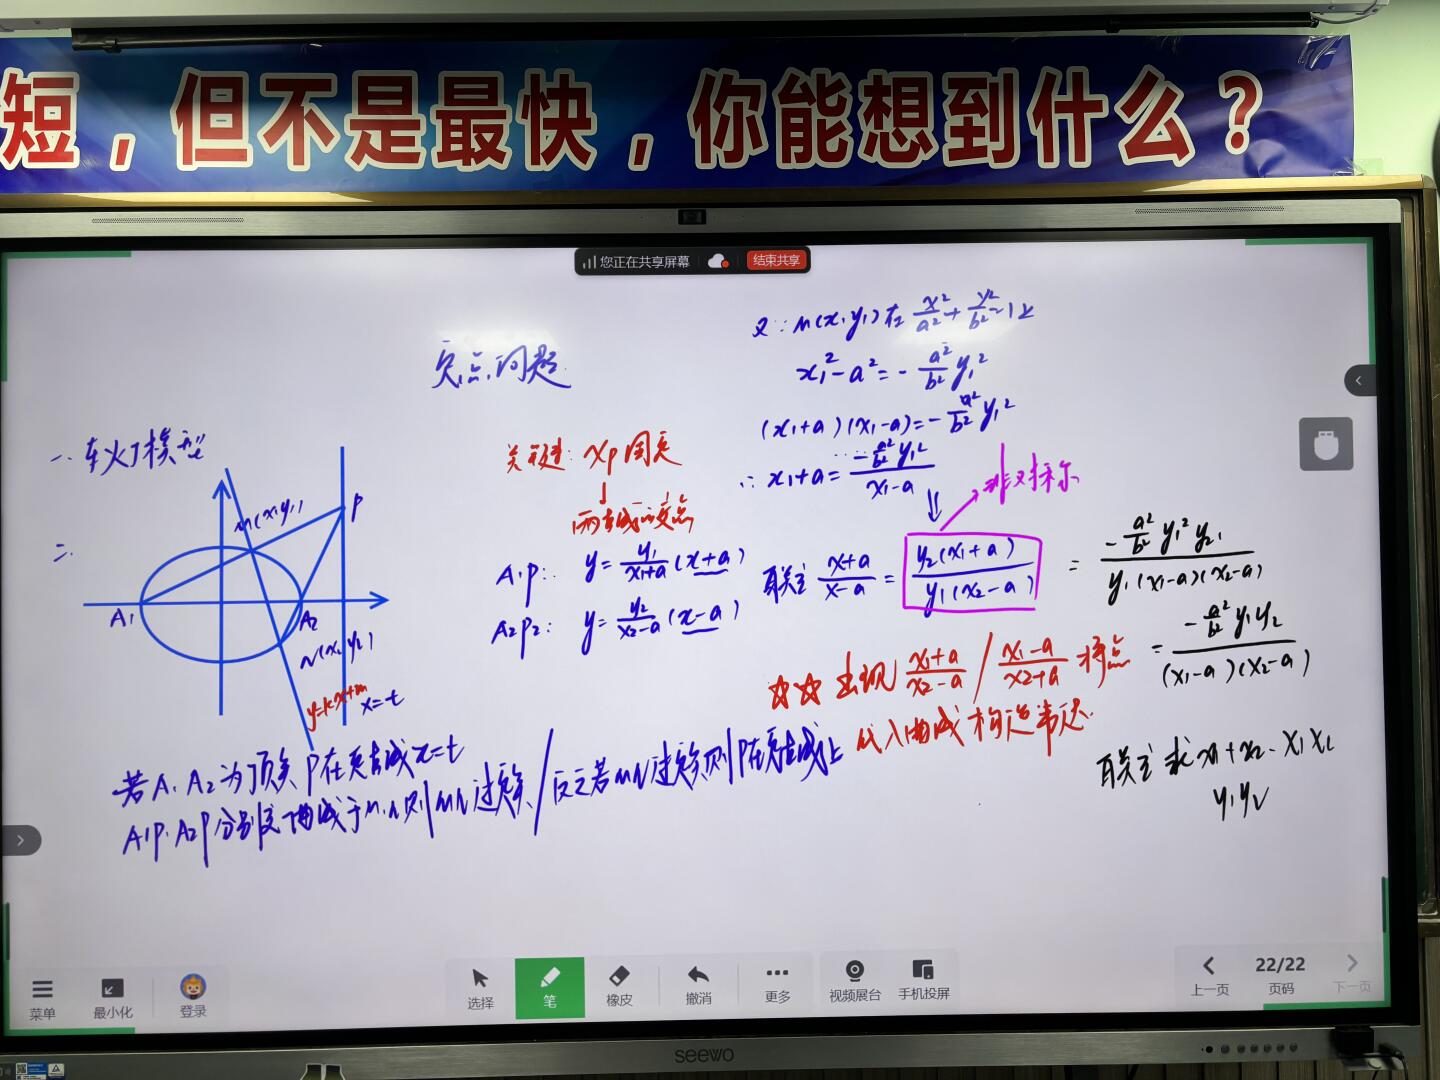 短，但不是最快，你能想到什么？
您正在共享屏幕 结束共享
定点问题
一、车灯模型
二、
M(x₁y₁)
P
A₁
A₂
N(x₂y₂)
y=kx+m
x=t
若A₁A₂为顶点 P在定直线x=t
A₁P.A₂P分别交曲线于M.N则MN过定点/反之若MN过定点则P在定直线上
关键: xₚ固定
↓
两直线的交点
A₁P: y=\frac{y₁}{x₁+a}(x+a)
A₂P₂: y=\frac{y₂}{x₂-a}(x-a)
又∵M(x₁y₁)在\frac{x²}{a²}+\frac{y²}{b²}=1上
x₁²-a²=-\frac{a²}{b²}y₁²
(x₁+a)(x₁-a)=-\frac{a²}{b²}y₁²
∴x₁+a=\frac{-\frac{a²}{b²}y₁²}{x₁-a}
⇓
非对称
联立\frac{x+a}{x-a}=\frac{y₂(x₁+a)}{y₁(x₂-a)}=\frac{-\frac{a²}{b²}y₁²y₂}{y₁(x₁-a)(x₂-a)}
=\frac{-\frac{a²}{b²}y₁y₂}{(x₁-a)(x₂-a)}
☆☆出现\frac{x₁+a}{x₂-a}/\frac{x₁-a}{x₂+a}将点
代入曲线构造韦达.
联立求x₁+x₂.x₁x₂
y₁y₂
菜单
最小化
登录
选择
笔
橡皮
撤消
更多
视频展台
手机投屏
上一页
22/22
页码
下一页
seewo